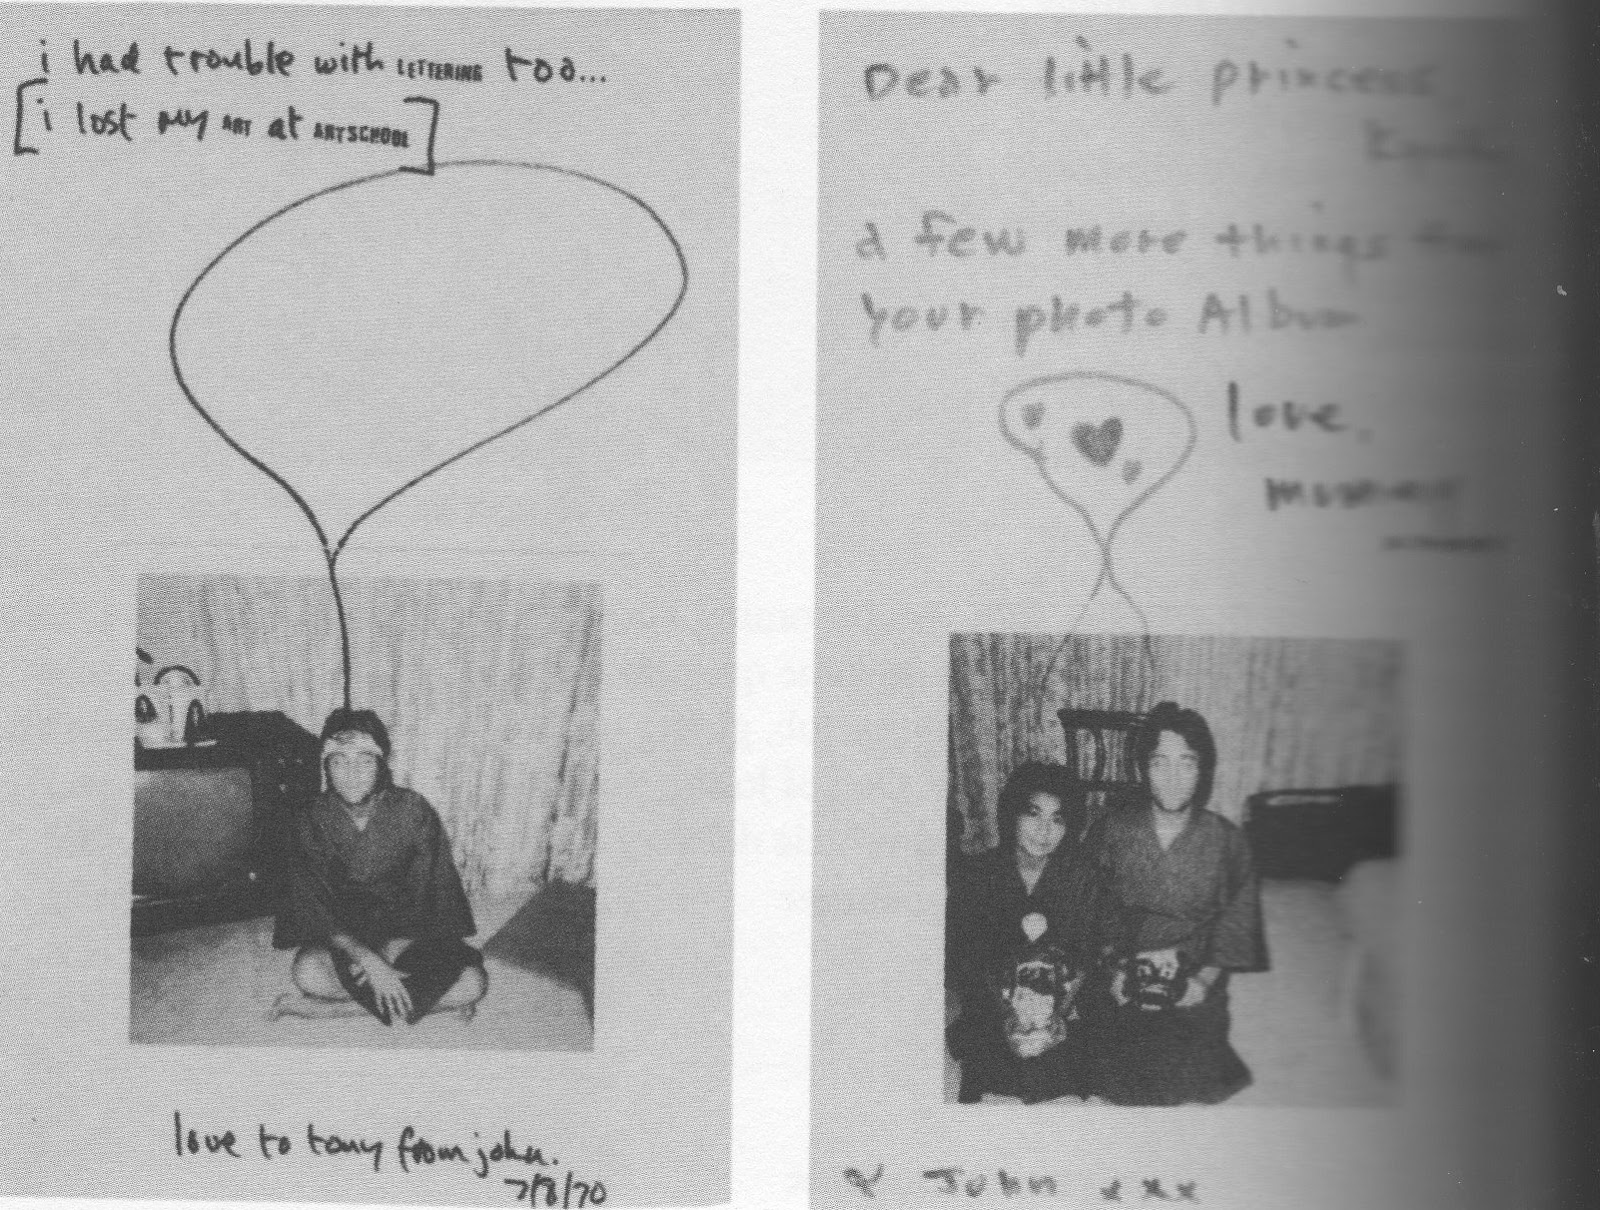 i had trouble with LETTERING too...
[i lost my ART at ARTSCHOOL]
love to tony from john.
7/8/70
Dear little princess
a few more things
your photo Album
love,
& John xxx